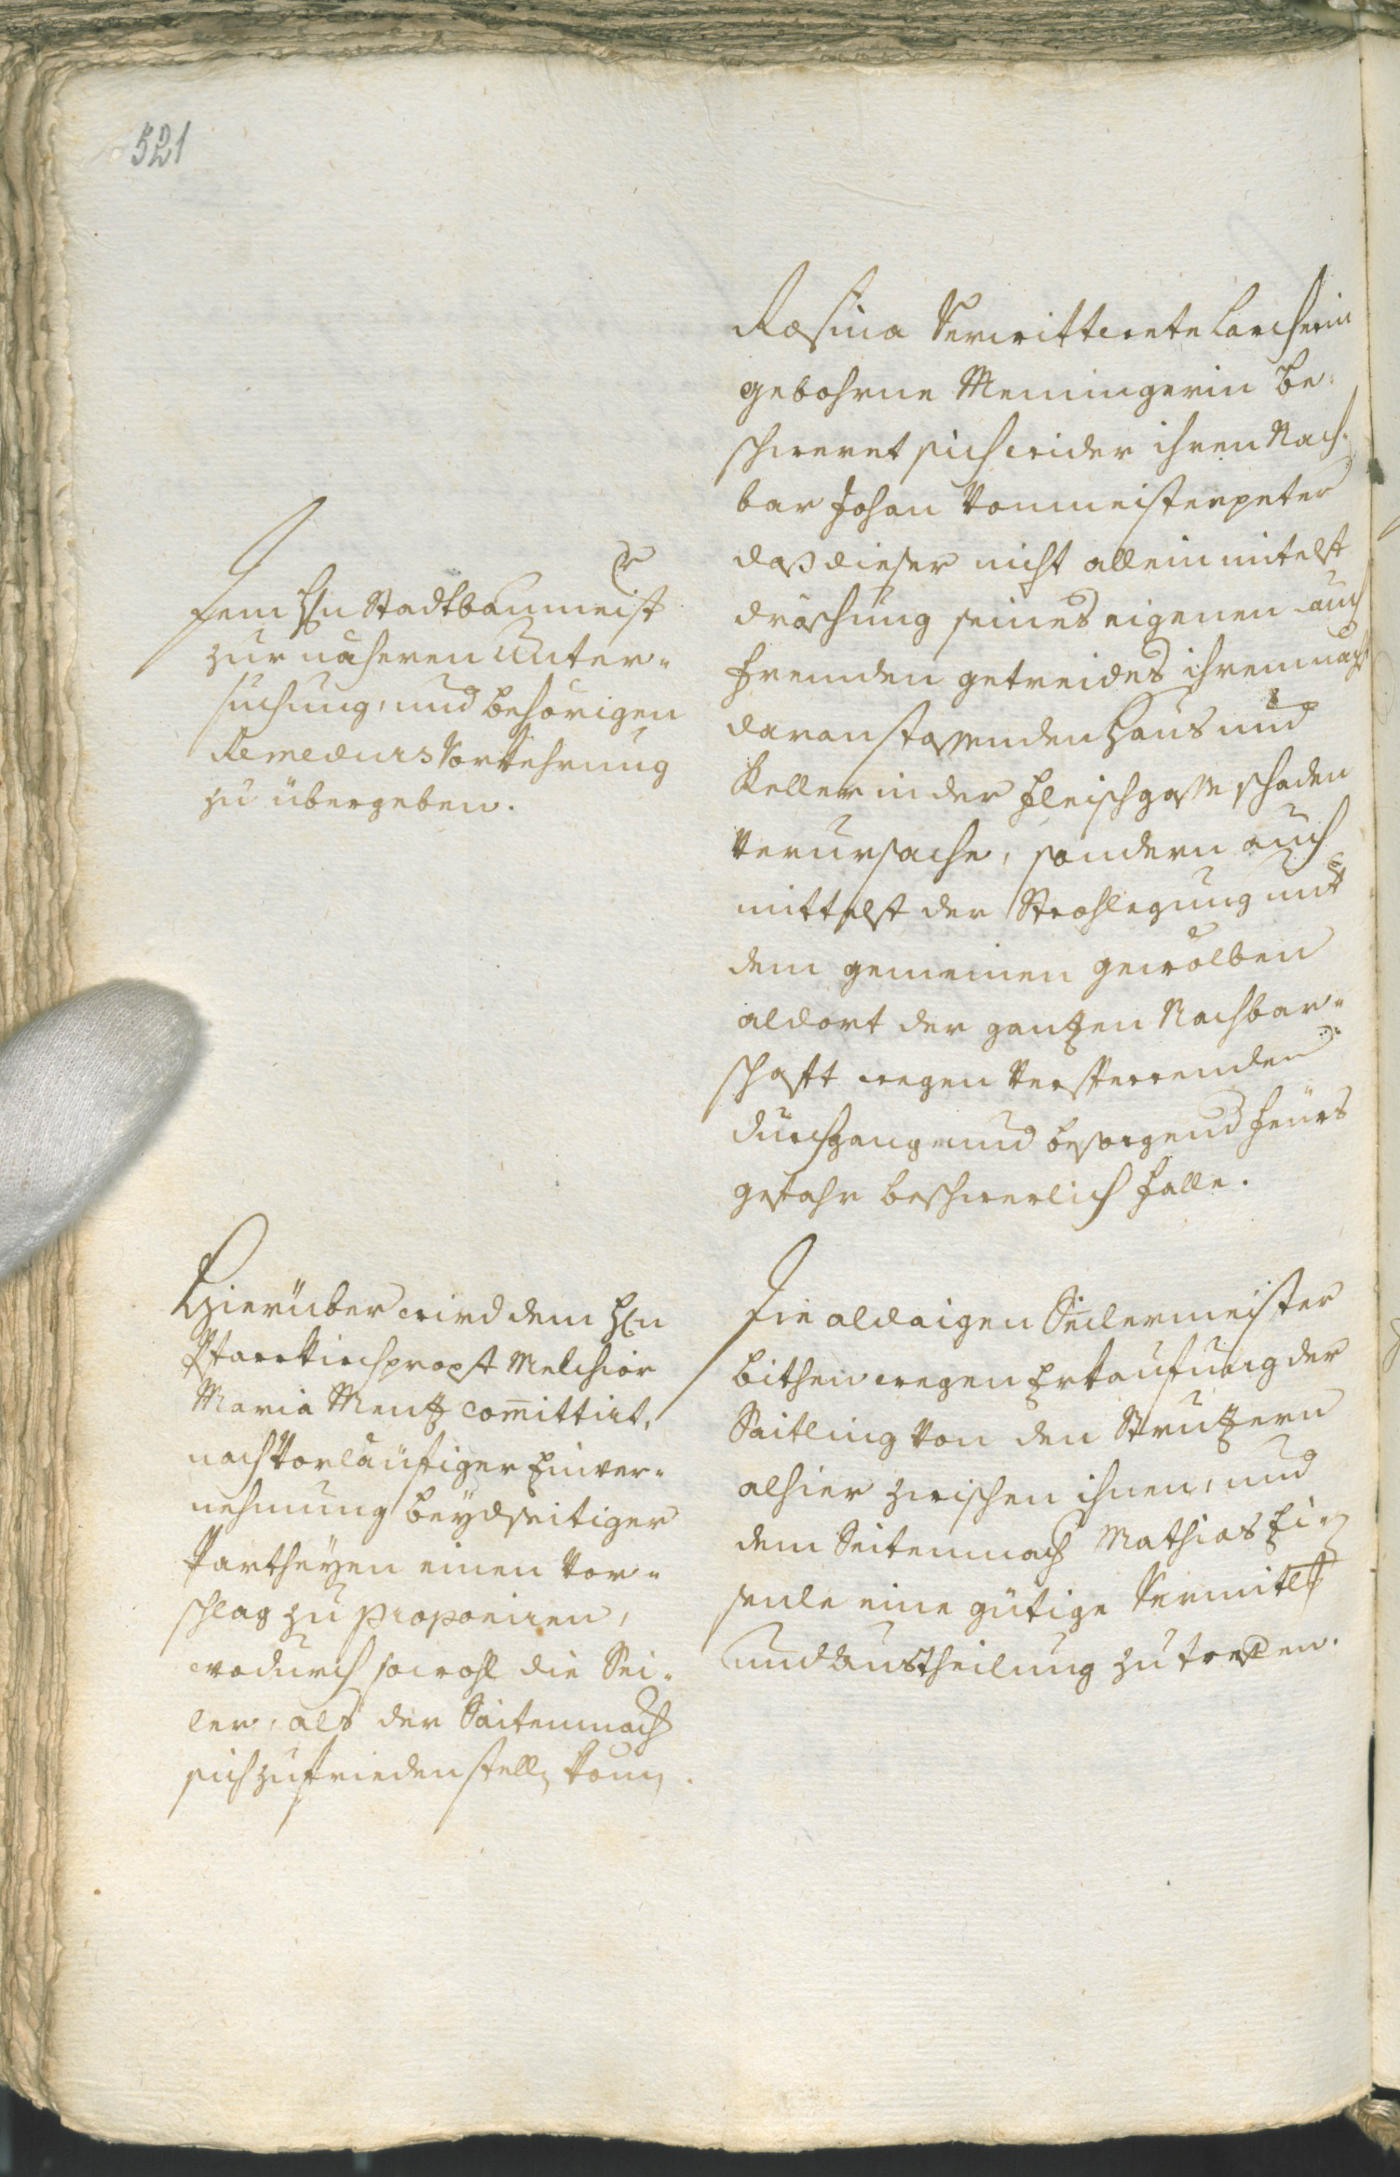 521
Rosina Verwittwete Larcherin
gebohrne Meningerin be¬
schweret sich wider ihren Nach¬
bar Johan Vonmeisterpeter
daß dieser nicht allein mitelst
dröschung seines eigenen auch
fremden getreides ihrem nächst
daranstossenden Haus und
Keller in der Fleischgasse schaden
verursache, sondern auch
mittelst der Strohlegung unt
dem gemeinen gewölben
aldort der gantzen Nachbar¬
schaft wegen Versperrender
durchgang und besorgend feürs
gefahr beschwerlich falle.
Dem Hn Stadtbaumeister
zur näheren Unter¬
suchung, und behörigen
Remedurs Vorkehrung
zu übergeben.
Die aldaigen Seilermeister
bithen wegen Erkaufung der
Saitling von den Strutzern
alhier zwischen ihnen, und
dem Seitenmach Mathias
eine gütige Vermitl
und Austheilung zu trefen.
Hierüber wird dem Hn
Pfarrkirchpropst Melchior
Maria Mentz committirt,
nach vorläufiger Einver¬
nehmung beydseitiger
Partheyen einen Vor¬
schlag zu proponiren,
wodurch sowohl die Sei¬
ler, als der Saitenmach
sich zufrieden stellen könn.